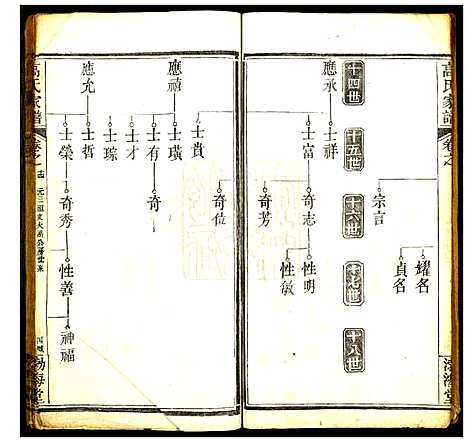 高氏家譜
卷之
渤海堂
耀名
貞名
宗言
十四世
十五世
十六世
十七世
十八世
應承
士祥
士富
奇志
奇芳
性明
性敏
士貴
奇位
應禎
士璜
士有
奇
士才
士琮
應允
士哲
士榮
奇秀
性善
神福
高氏家譜
卷之一
渤海堂